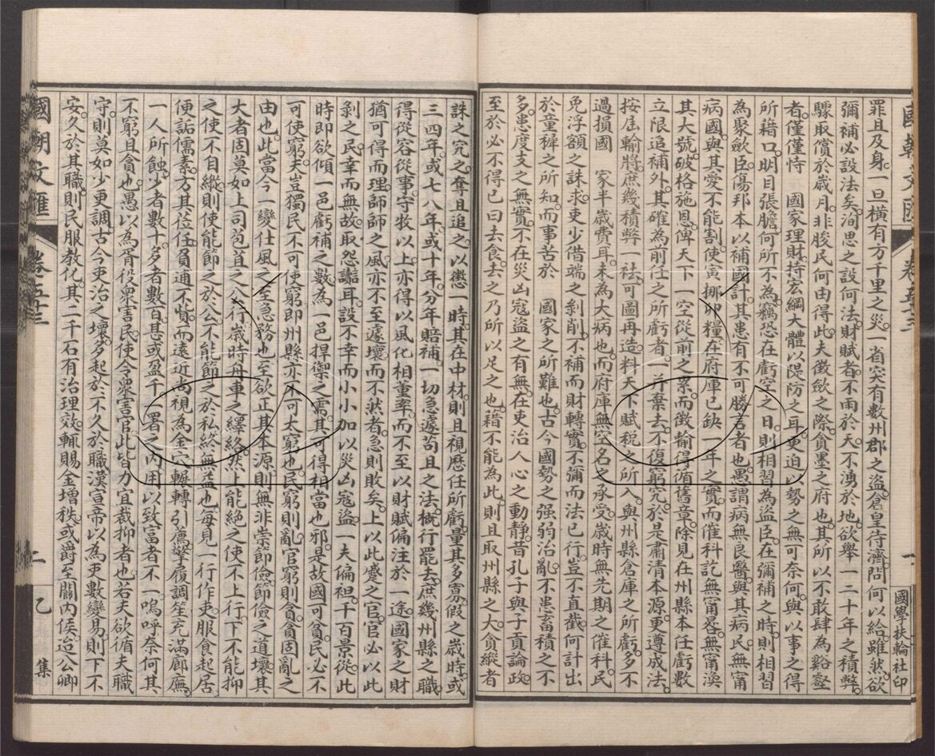 國朝文匯 卷五十三 國學扶輪社印
罪且及身一旦橫有方千里之災一省突有數州郡之盜倉皇待濟問何以給雖然欲
彌補必設法矣洵思之設何法財賦者不雨於天不湧於地欲舉一二十年之積弊
驟取償於歲月非朘民何由得此夫徵歛之際貪墨之府也其所以不敢肆為谿壑
者僅僅恃 國家理財持宏綱大體以隄防之耳更迫以勢之無可奈何與以事之得
所藉口明目張膽何所不為竊恐在虧空之日則相習為盜臣在彌補之時則相習
為聚歛臣傷邦本以補國計其患有不可勝言者也愚謂病無良醫與其病民無甯
病國與其愛不能割使寅挪卯糧在府庫已缺一年之實而催科訖無甯晷無甯渙
其大號破格施恩俾天下一空從前之累而徵輸得循舊章除見在州縣本任虧數
立限追補外其確為前任之所虧者一齊棄去不復窮究於是肅清本源更遵成法
按屆輸將庶幾積弊一袪可圖再造料天下賦稅之所入與州縣倉庫之所虧多不
過損國 家半歲費耳未為大病也而府庫無空名之承受歲時無先期之催科民
免浮額之誅求吏少借端之剝削不補而財轉實不彌而法已行豈不直截何計出
於童稗之所知而事苦於 國家之所難也古今國勢之强弱治亂不患畜積之不
多患度支之無實不在災凶寇盜之有無在吏治人心之動靜昔孔子與子貢論政
至於必不得已曰去食去之乃所以足之也藉不能為此則且取州縣之大貪縱者
誅之究之奪且追之以懲一時其在中材則且視歷任所虧量其多寡假之歲時或
三四年或七八年或十年分年賠補一切急遽苟且之法概行罷去庶幾州縣之職
得從容從事守牧以上亦得以風化相董率而不至以財賦偏注於一途國家之財
猶可得而理師師之風亦不至遽壞而不然者急則敗矣上以此蹙之官官必以此
剝之民幸而無故取怨讟耳設不幸而小小加以災凶寇盜一夫徧袒千百景從此
時即欲傾一邑虧補之數為一邑捍禦之需其可得相當也邪是故國可貧民必不
可使窮夫豈獨民不可使窮即州縣亦不可太窮也民窮則亂官窮則貪貪固亂之
由也此當今一變仕風之至急務也至欲正其本源則無非崇節儉節儉之道壞其
大者固莫如上司苞苴之公行歲時舟車之繹絡然上能絕之使不上行下不能抑
之使不自縱則使能節之於公不能節之於私終無益也每見一行作吏服食起居
便詬儒素方其位任負逋不貲而遠近苦視為金穴輾轉引麕擊履調笙充滿廊廡
一人所飽少者數十多者數百甚或盈千一署之內用以致富者不一嗚呼奈何其
不窮且貪也愚以為胥役衆害民使令衆害官此皆力宜裁抑者也若夫欲循夫職
守則莫如少更調古今吏治之壞多起於不久於職漢宣帝以為吏數變易則下不
安久於其職則民服教化其二千石有治理效輒賜金增秩或爵至關內侯迨公卿
國朝文匯 卷五十三 二 乙集